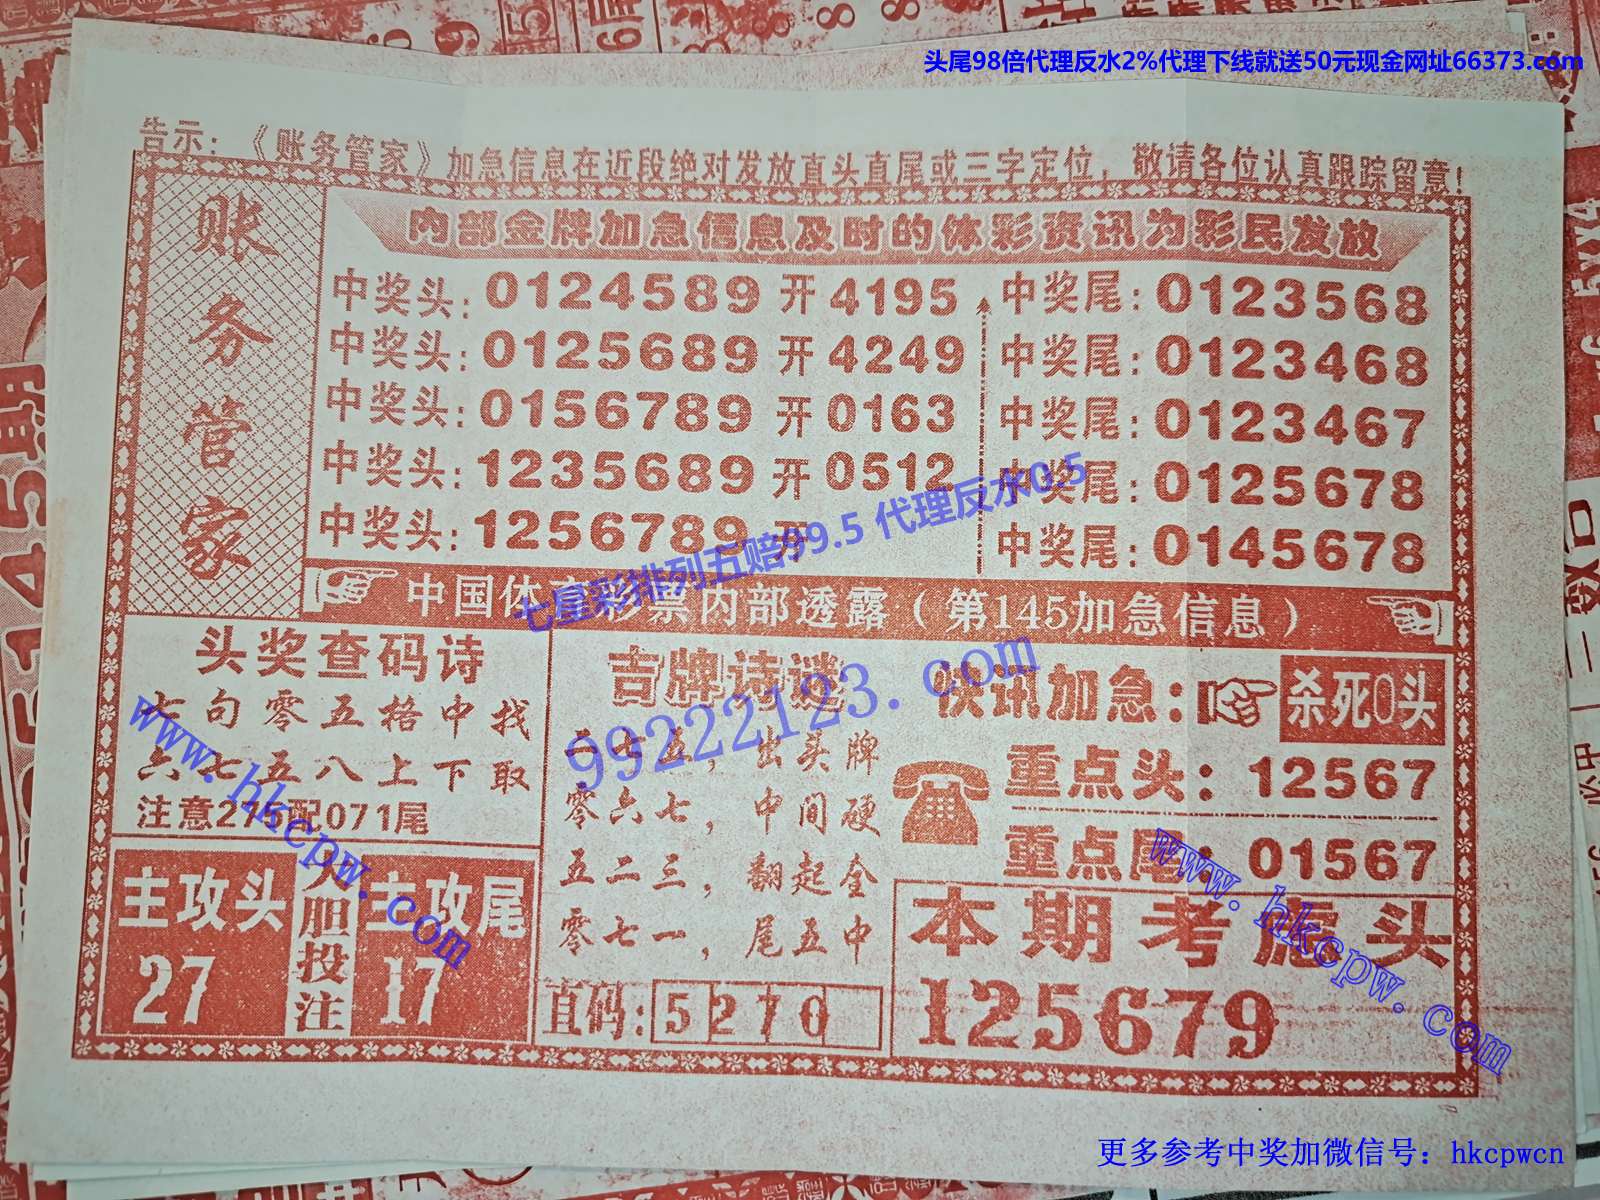 头尾98倍代理反水2%代理下线就送50元现金网址66373.com
告示：《账务管家》加急信息在近段绝对发放直头直尾或三字定位，敬请各位认真跟踪留意！
账务管家
内部金牌加急信息及时的体彩资讯为彩民发放
中奖头：0124589开4195 中奖尾：0123568
中奖头：0125689开4249 中奖尾：0123468
中奖头：0156789开0163 中奖尾：0123467
中奖头：1235689开0512 中奖尾：0125678
中奖头：1256789开 中奖尾：0145678
七星彩排列五赔99.5 代理反水0.5
中国体育彩票内部透露（第145加急信息）
头奖查码诗
七句零五格中找
六七五八上下取
注意275配071尾
主攻头
27
大胆投注
主攻尾
17
吉牌诗谜
二七五，出头牌
零六七，中间硬
五二三，翻起全
零七一，尾五中
直码：5270
快讯加急：
杀死0头
重点头：12567
重点尾：01567
本期考虑头
125679
99222123.com
www.hkcpw.com
www.hkcpw.com
更多参考中奖加微信号：hkcpwcn